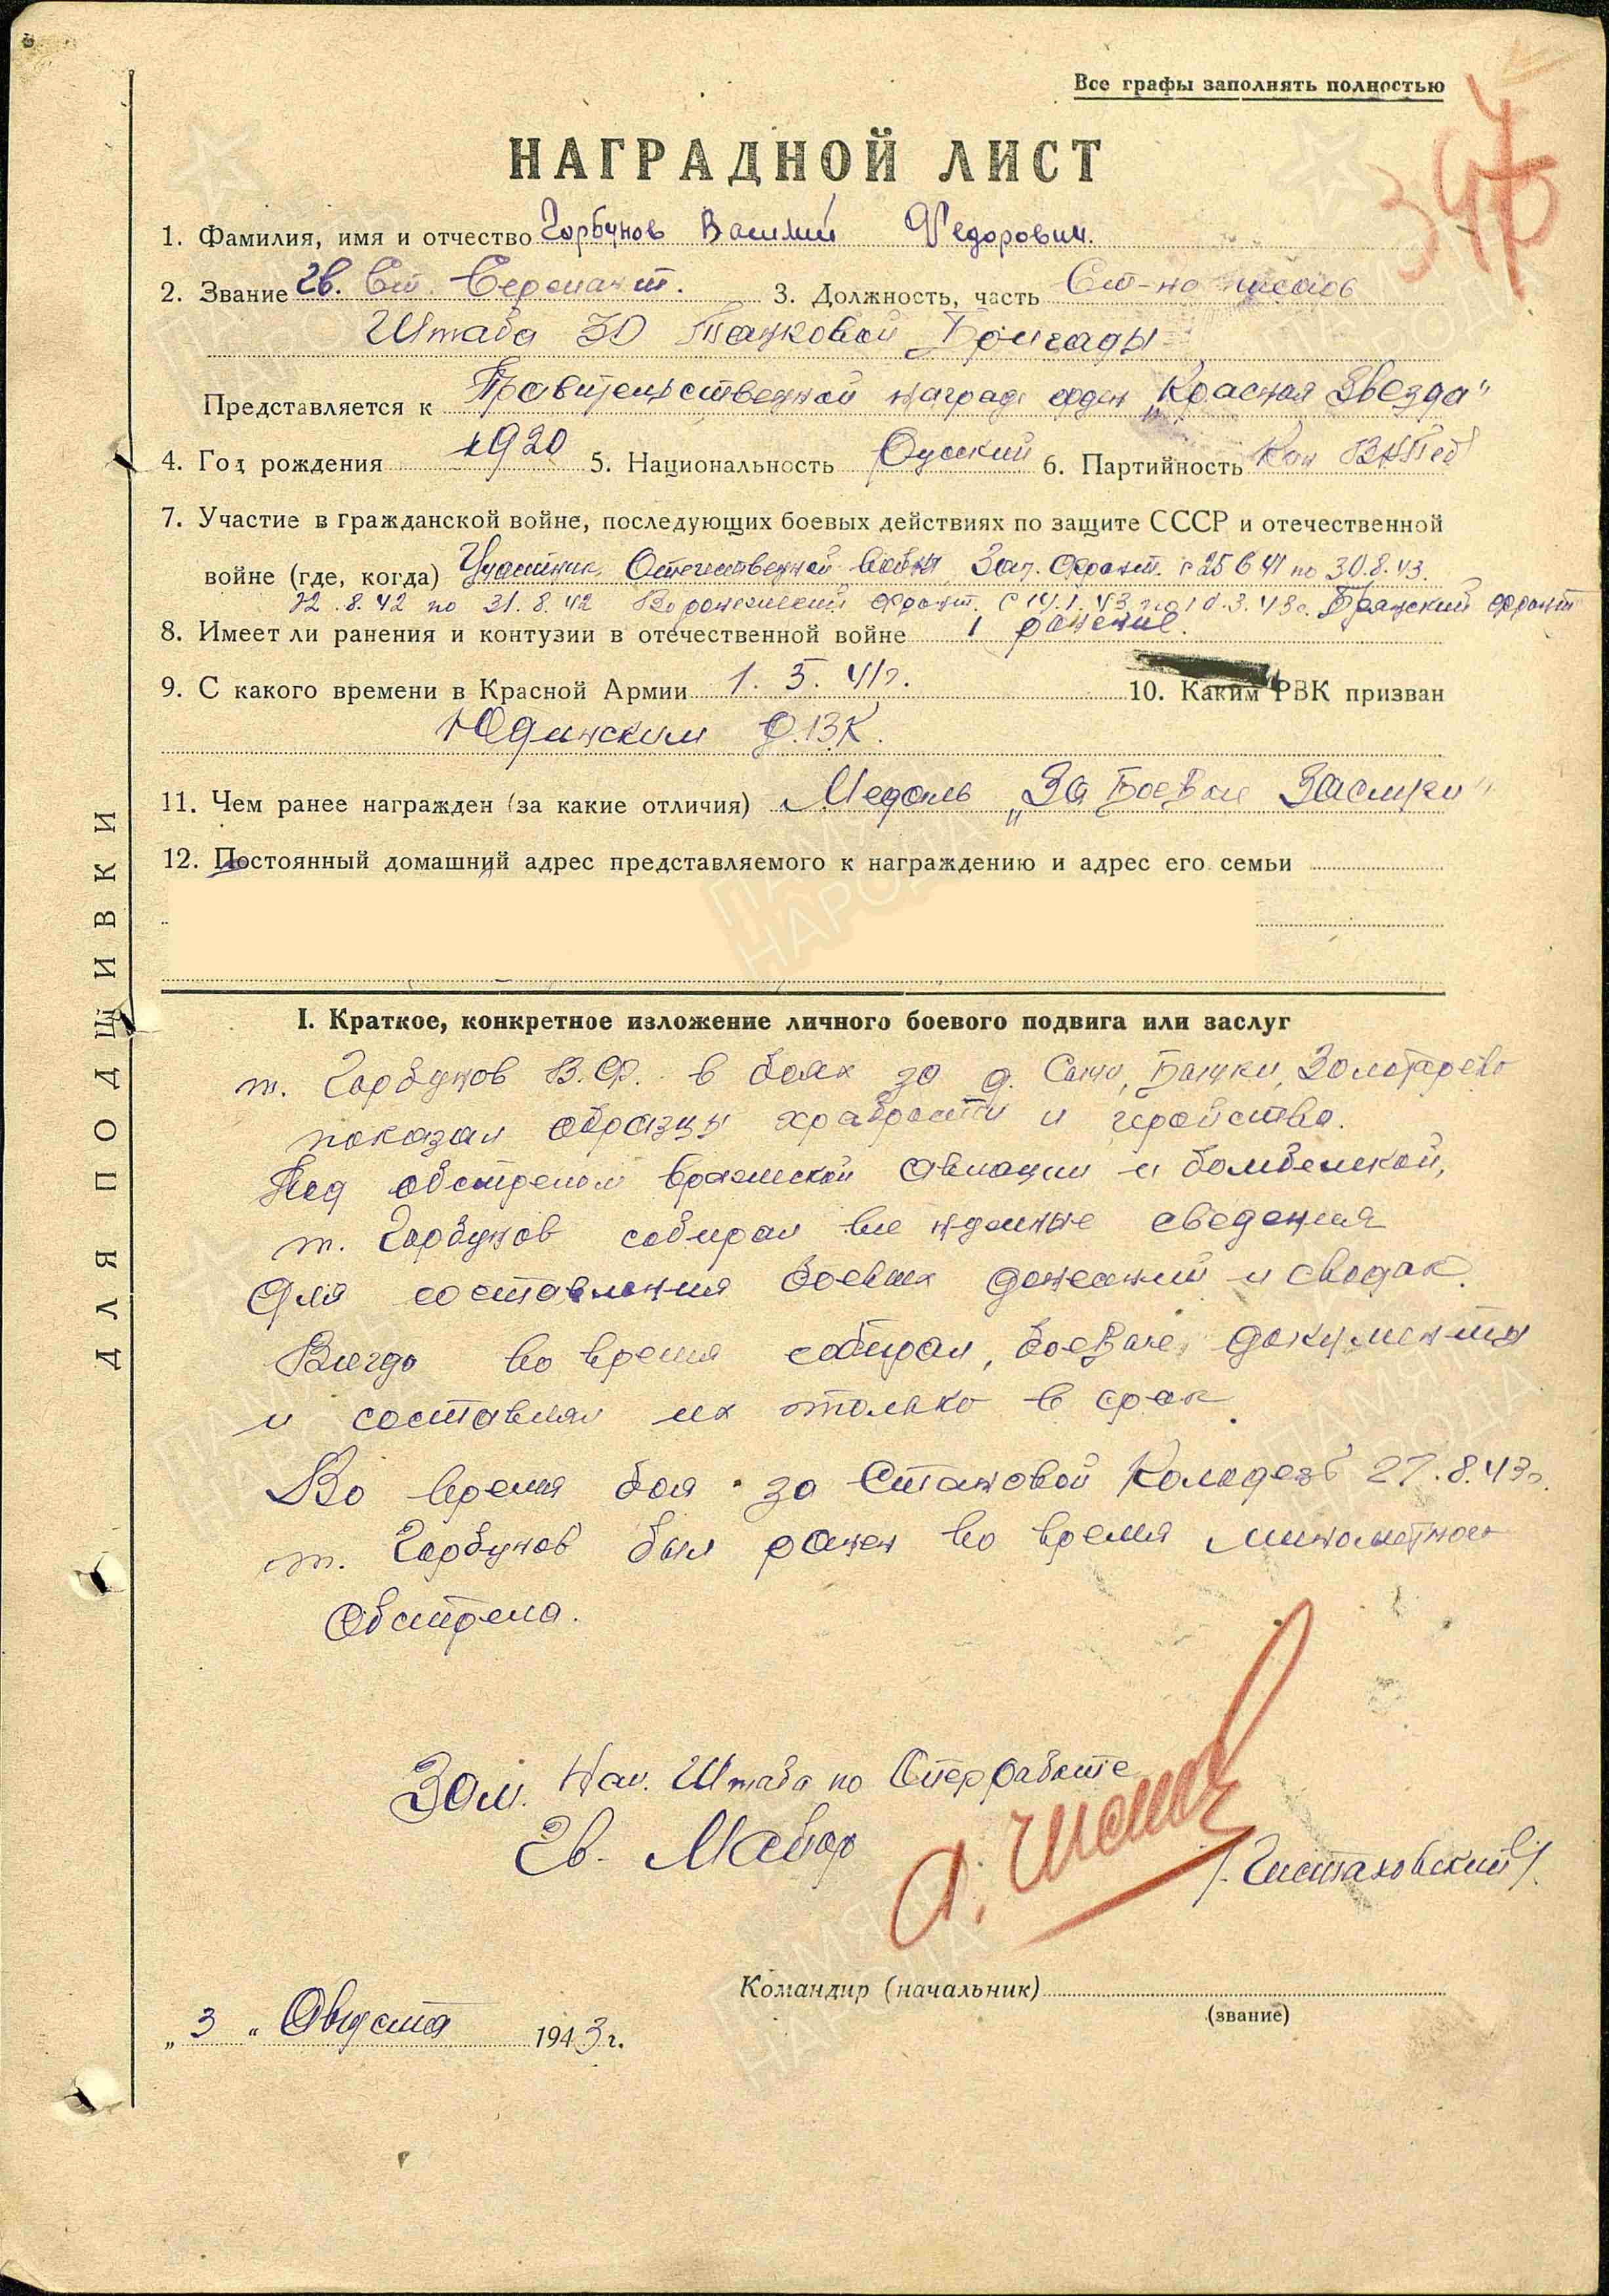 Все графы заполнять полностью
347
НАГРАДНОЙ ЛИСТ
1. Фамилия, имя и отчество Горбунов Василий Федорович.
2. Звание гв. Ст. Сержант. 3. Должность, часть Ст-на писарь
Штаба 30 Танковой Бригады
Представляется к Правительственной награде орден „Красная Звезда"
4. Год рождения 1920 5. Национальность Русский 6. Партийность Кан ВКП(б)
7. Участие в гражданской войне, последующих боевых действиях по защите СССР и отечественной
войне (где, когда) Участник Отечественной войны Зап. Фронт. с 25 6 41 по 30.8.43.
22.8.42 по 31.8.42 Воронежский фронт. с 14.1.43 по 10.3.43г. Брянский фронт
8. Имеет ли ранения и контузии в отечественной войне 1 ранение.
9. С какого времени в Красной Армии 1. 5. 41г. 10. Каким РВК призван
Юдинским Р.В.К.
11. Чем ранее награжден (за какие отличия) Медаль „За Боевые Заслуги"
12. Постоянный домашний адрес представляемого к награждению и адрес его семьи
ДЛЯ ПОДШИВКИ
I. Краткое, конкретное изложение личного боевого подвига или заслуг
т. Горбунов В.Ф. в боях за д. Золотарево
показал образцы храбрости и геройства.
Под обстрелом вражеской авиации и бомбежкой,
т. Горбунов собирал все нужные сведения
для составления боевых донесений и сводок.
Всегда во время собирал, боевые документы
и составлял их только в срок.
Во время боя за Становой Колодезь 27.8.43г.
т. Горбунов был ранен во время минометного
Обстрела.
Зам. Нач. Штаба по Опер работе
Гв. Майор
/Чистаховский/.
Командир (начальник)
(звание)
„3" Августа 1943 г.
ПАМЯТЬ
НАРОДА